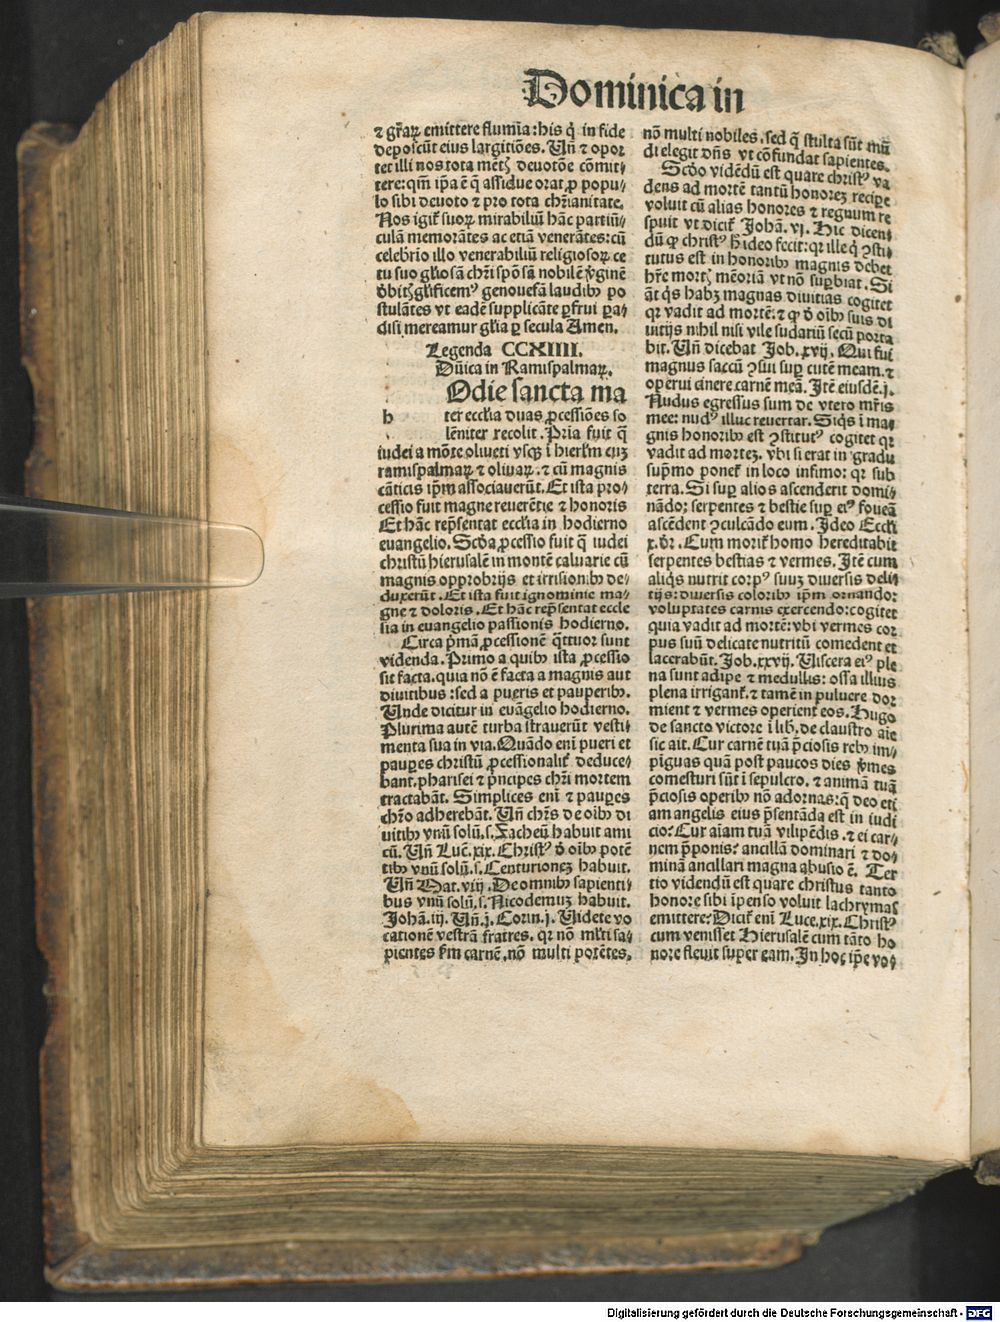 Dominica in
⁊ gr̃aꝝ emittere flumĩa: his q̇ in fide
deposcũt eius largitiões. Uñ ⁊ opor
tet illi nos tota mẽtꝭ deuotõe cõmit⸗
tere: qm̃ ip̃a ẽ q̃ assidue orat ꝓ popu⸗
lo sibi deuoto ⁊ pro tota chr̃ianitate.
Nos igit̃ suoꝝ mirabiliũ hãc partiũ⸗
culã memorãtes ac etiã venerãtes: cũ
celebrio illo venerabiliũ religiosoꝝ ce
tu suo gl̃iosã chr̃i spõsã nobilẽ ṽginẽ
ꝺbitꝭ gl̃ificemꝰ genouefã laudibꝫ po
stulãtes vt eadẽ supplicãte ꝑfrui ꝑa⸗
disi mereamur gl̃ia ꝑ secula Amen.
Legenda CCXIIII.
Dñica in Ramispalmaꝝ.
hOdie sancta ma
ter eccl̃ia duas ꝓcessiões so
lẽniter recolit. Pria fuit q̃
iudei a mõte oliueti vsqꝫ ĩ hierl̃m cuꝫ
ramispalmaꝝ ⁊ oliuaꝝ. ⁊ cũ magnis
cãticis ip̃m associauerũt. Et ista pro⸗
cessio fuit magne reuerẽtie ⁊ honoris
Et hãc rep̃sentat eccl̃ia in hodierno
euangelio. Scḋa ꝓcessio fuit q̃ iudei
christũ hierusalẽ in montẽ caluarie cũ
magnis opprobrijs et irrisionibꝫ de⸗
duxerũt. Et ista fuit ignominie ma⸗
gne ⁊ doloris. Et hãc rep̃sentat eccle
sia in euangelio passionis hodierno.
Circa p̃mã ꝓcessionẽ q̃ttuor sunt
videnda. Primo a quibꝫ ista ꝓcessio
sit facta. quia nõ ẽ facta a magnis aut
diuitibus: sed a pueris et pauperibꝫ.
Unde dicitur in euãgelio hodierno.
Plurima autẽ turba strauerũt vesti⸗
menta sua in via. Quãdo enĩ pueri et
pauꝑes christũ ꝓcessionalit̃ deduce⸗
bant. pharisei ⁊ p̃ncipes chr̃i mortem
tractabãt. Simplices enĩ ⁊ pauꝑes
chr̃o adherebãt. Uñ chr̃s de oĩbꝫ di
uitibꝫ vnũ solũ. s. Zacheũ habuit ami
cũ. Uñ Luc̃. xix. Christꝰ ꝺ oĩbꝫ potẽ
tibꝫ vnũ solũ. s. Centurioneꝫ habuit.
Uñ Mat. viij. De omnibꝫ sapienti⸗
bus vnũ solũ. s. Nicodemuꝫ habuit.
Johã. iij. Uñ. j. Corin. j. Uidete vo
cationẽ vestrã fratres. qꝛ nõ ml̃ti sa⸗
pientes s̃m carnẽ. nõ multi potẽtes.
nõ multi nobiles. sed q̃ stulta sũt mũ
di elegit dñs vt cõfundat sapientes.
Scḋo vidẽdũ est quare christꝰ va
dens ad mortẽ tantũ honoreꝫ recipe
voluit cũ alias honores ⁊ regnum re
spuit vt dicit̃ Johã. vj. Hic dicen⸗
dũ ꝙ christꝰ h̃ ideo fecit: qꝛ ille q̇ ꝯsti⸗
tutus est in honoribꝫ magnis debet
hr̃e mortꝭ mẽoriã vt nõ suꝑbiat. Si
ãt q̇s habꝫ magnas diuitias cogitet
qꝛ vadit ad mortẽ. ⁊ ꝙ ꝺ oĩbꝫ suis di
uitijs nihil nisi vile sudariũ secũ porta
bit. Uñ dicebat Job. xvij. Qui fui
magnus saccũ ꝯsui suꝑ cutẽ meam. ⁊
operui cinere carnẽ meã. Itẽ eiusdẽ. j.
Nudus egressus sum de vtero mr̃is
mee: nudꝰ illuc reuertar. Siq̇s ĩ ma⸗
gnis honoribꝫ est ꝯstitutꝰ cogitet qꝛ
vadit ad morteꝫ. vbi si erat in gradu
sup̃mo ponet̃ in loco infimo: qꝛ sub
terra. Si suꝑ alios ascenderit domi⸗
nãdo; serpentes ⁊ bestie suꝑ eiꝰ foueã
ascẽdent ꝯculcãdo eum. Ideo Eccl̃i
x. ꝺr̃. Cum morit̃ homo hereditabit
serpentes bestias ⁊ vermes. Itẽ cum
aliq̇s nutrit corpꝰ suuꝫ diuersis deli⸗
tijs: diuersis coloribꝫ ip̃m ornando:
voluptates carnis exercendo: cogitet
quia vadit ad mortẽ: vbi vermes cor
pus suũ delicate nutritũ comedent et
lacerabũt. Job. xxvij. Uiscera eiꝰ ple
na sunt adipe ⁊ medullis: ossa illius
plena irrigant̃. ⁊ tamẽ in puluere dor
mient ⁊ vermes operient eos. Hugo
de sancto victore ĩ lib̃. de claustro aĩe
sic ait. Cur carnẽ tuã p̃ciosis rebꝫ im⸗
pĩguas quã post paucos dies ṽmes
comesturi sũt ĩ sepulcro. ⁊ animã tuã
p̃ciosis operibꝫ nõ adornas: q̃ deo eti
am angelis eius p̃sentãda est in iudi
cio? Cur aĩam tuã vilipẽdis. ⁊ ei car⸗
nem p̃ponis? ancillã dominari ⁊ do⸗
minã ancillari magna abusio ẽ. Ter
tio videndũ est quare christus tanto
honore sibi ĩpenso voluit lachrymas
emittere? Dicit̃ enĩ Luce. xix. Christꝰ
cum venisset Hierusalẽ cum tãto ho
nore fleuit super eam. In hoc ip̃e vo⸗
Digitalisierung gefördert durch die Deutsche Forschungsgemeinschaft - DFG